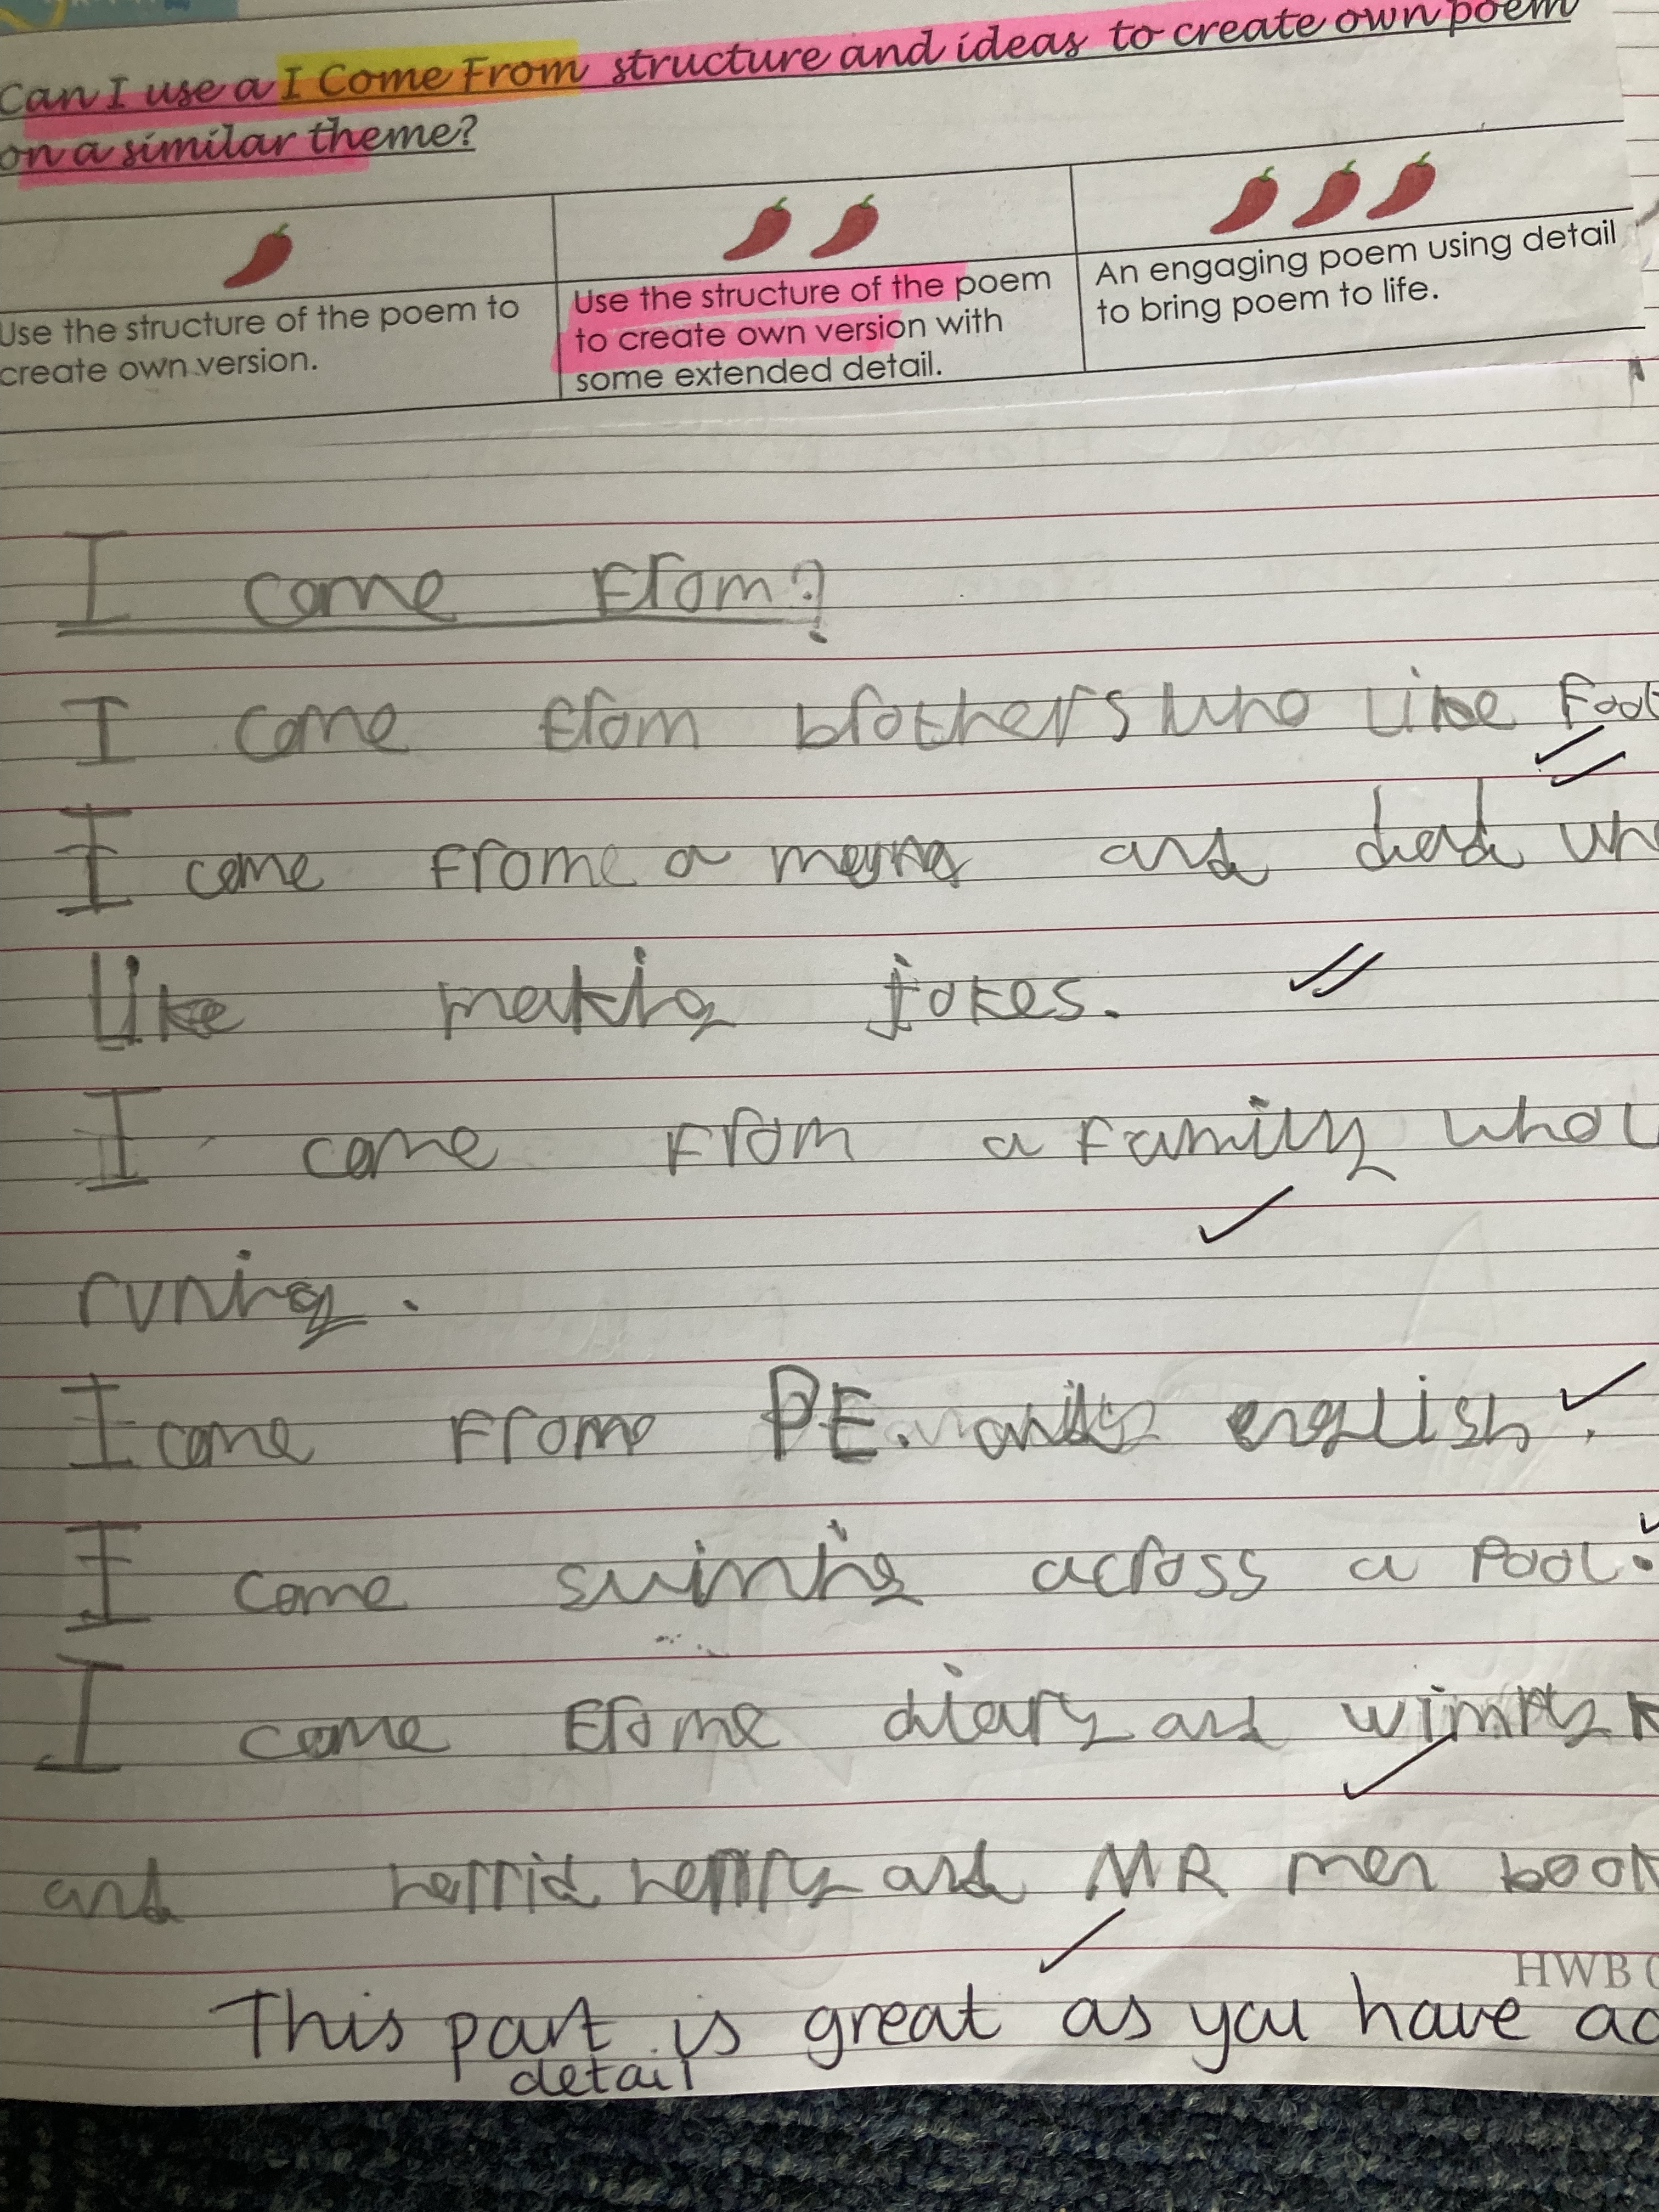 Can I use a I Come From structure and ideas to create own poem
on a similar theme?
Use the structure of the poem to
create own version.
Use the structure of the poem
to create own version with
some extended detail.
An engaging poem using detail
to bring poem to life.
I come From?
I come from brothers who like
I come frome a and dad
like making jokes.
I come From a Family who
runing.
I come Frome PE. english.
I come swiming across a Pool.
I come Frome diary and wimpy
and horrid henry and MR men
HWB
This part is great as you have
detail